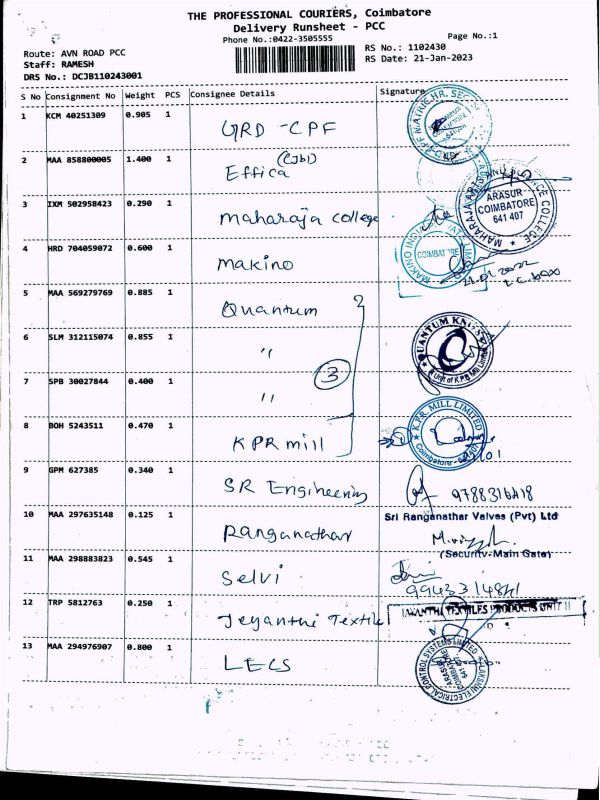 THE PROFESSIONAL COURIERS, Coimbatore
Delivery Runsheet - PCC
Phone No.:0422-3505555
Page No.:1
Route: AVN ROAD PCC
RS No.: 1102430
Staff: RAMESH
RS Date: 21-Jan-2023
DRS No.: DCJB110243001
S No Consignment No Weight PCS Consignee Details Signature
1 KCM 40251309 0.905 1 GRD - CPF
2 MAA 858800005 1.400 1 Effica (CJb1)
3 IXM 502958423 0.290 1 Maharaja college
ARASUR COIMBATORE 641 407
4 HRD 704059072 0.600 1 Makino
COIMBATORE
5 MAA 569279769 0.885 1 Quantum
QUANTUM KNITS
Unit of K.P.R Mill Limited
6 SLM 312115074 0.855 1 "
3
7 SPB 30027844 0.400 1 "
8 BOH 5243511 0.470 1 KPR mill
K.P.R. MILL LIMITED
Coimbatore
9 GPM 627385 0.340 1 SR Engineering
10 MAA 297635148 0.125 1 Ranganathar
Sri Ranganathar Valves (Pvt) Ltd
(Security-Main Gate)
11 MAA 298883823 0.545 1 Selvi
12 TRP 5812763 0.250 1 Jeyanthi Textile
JAYANTHI TEXTILES PRODUCTS UNIT II
13 MAA 294976907 0.800 1 LECS